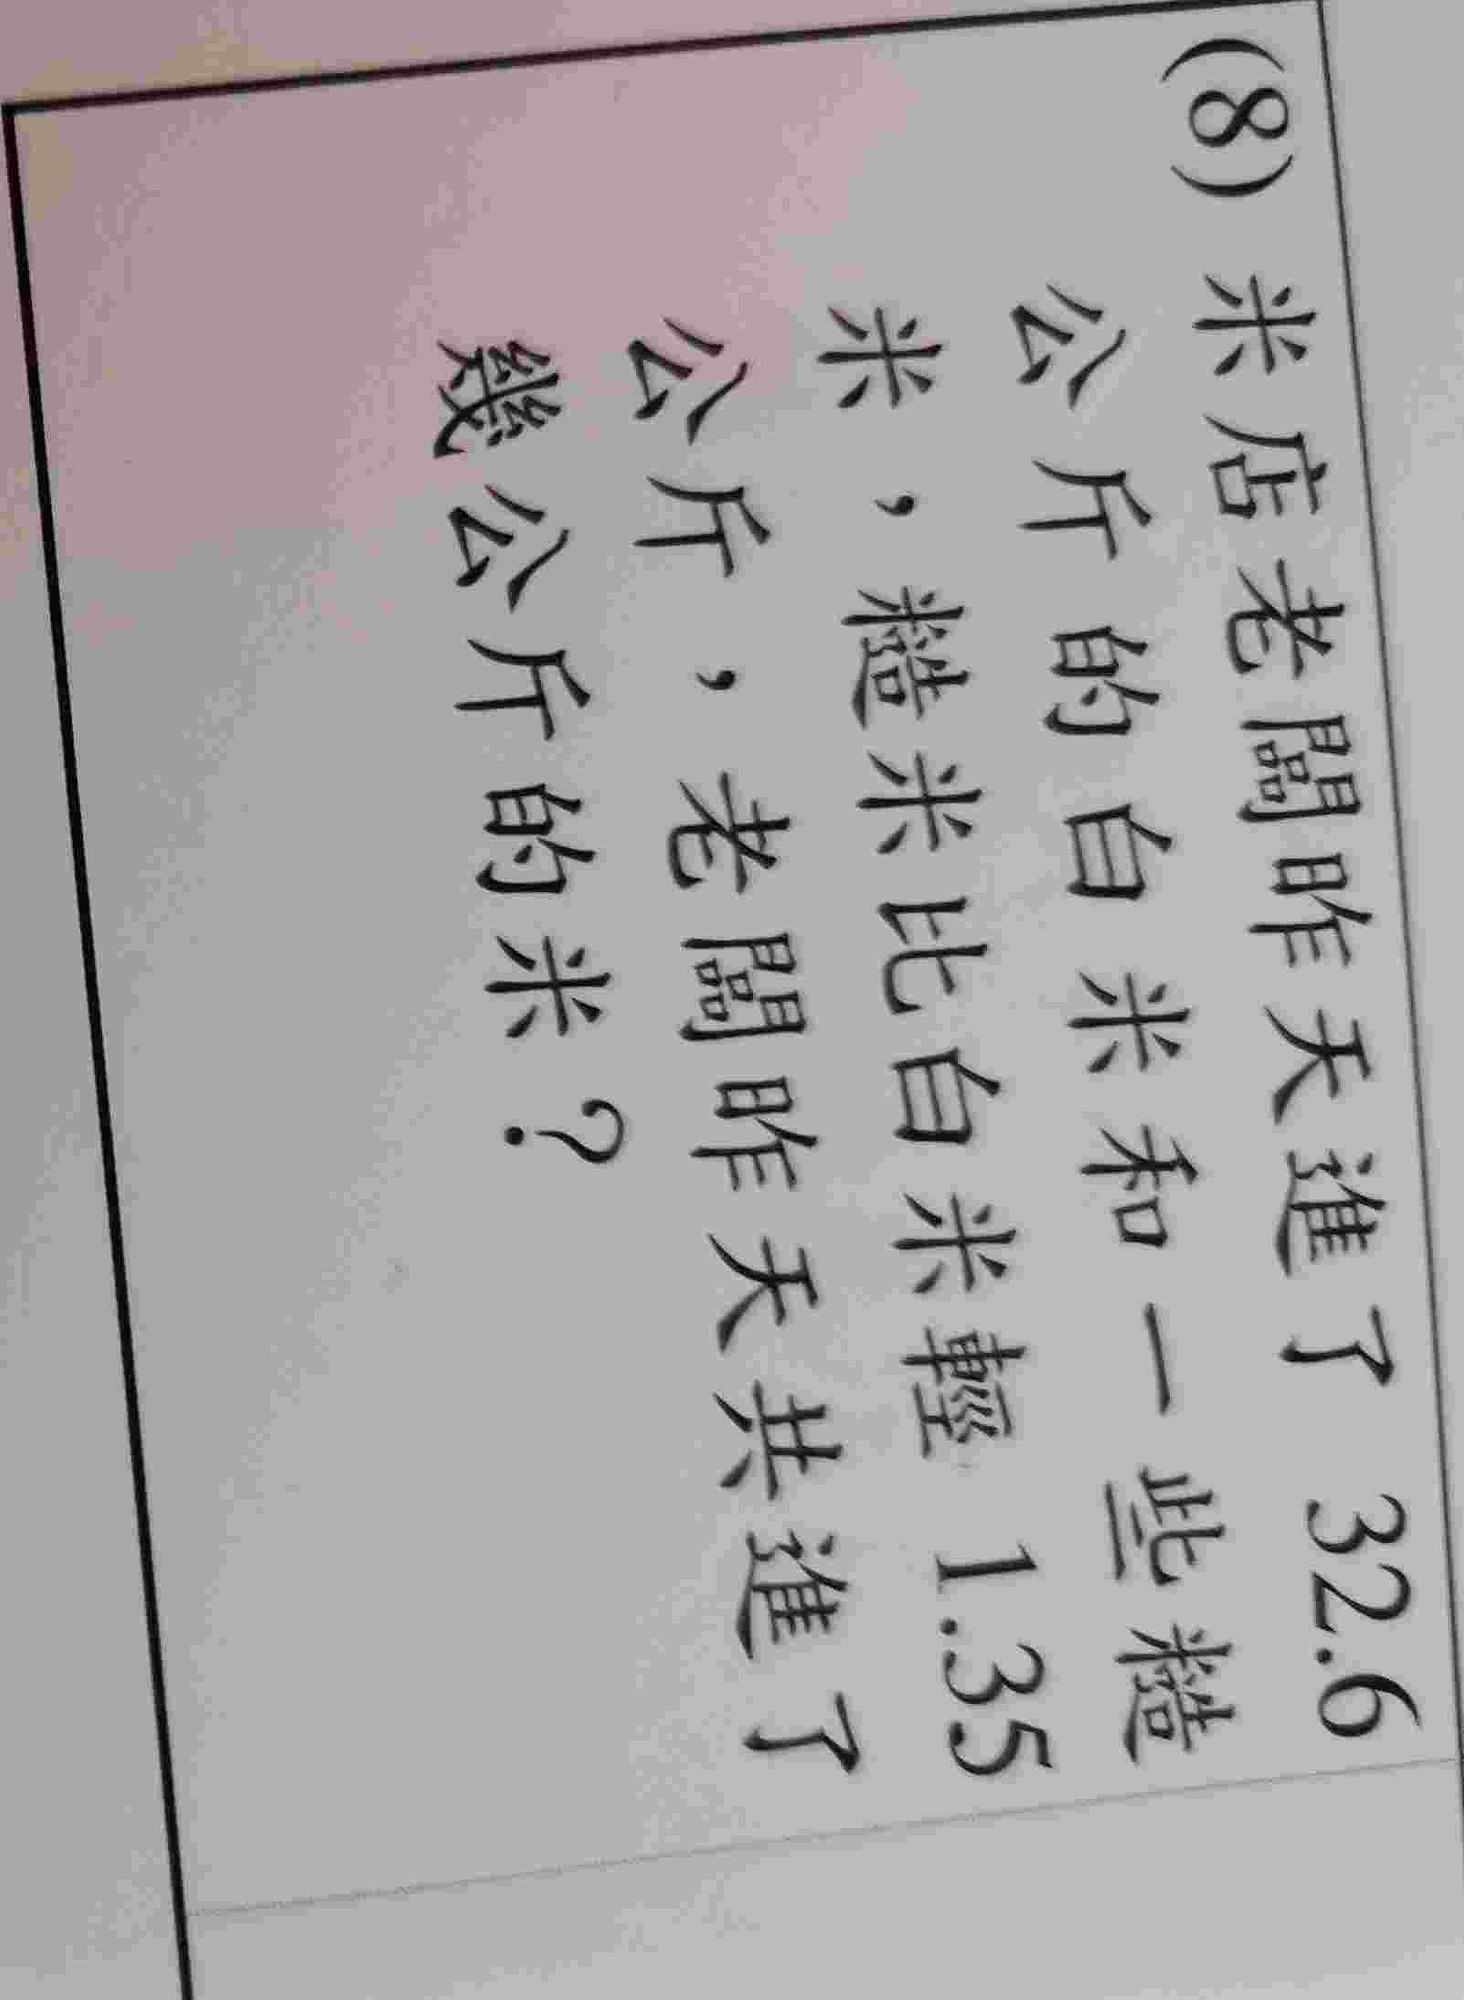 (8) 米店老闆昨天進了 32.6
公斤的白米和一些糙
米，糙米比白米輕 1.35
公斤，老闆昨天共進了
幾公斤的米？